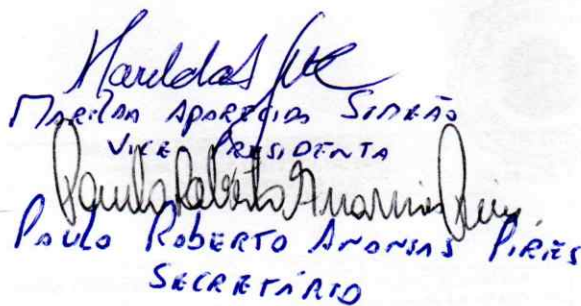 MARILDA APARECIDA SIMEÃO
VICE PRESIDENTA
Paulo Roberto Ananias Pires
PAULO ROBERTO ANANIAS PIRES
SECRETÁRIO